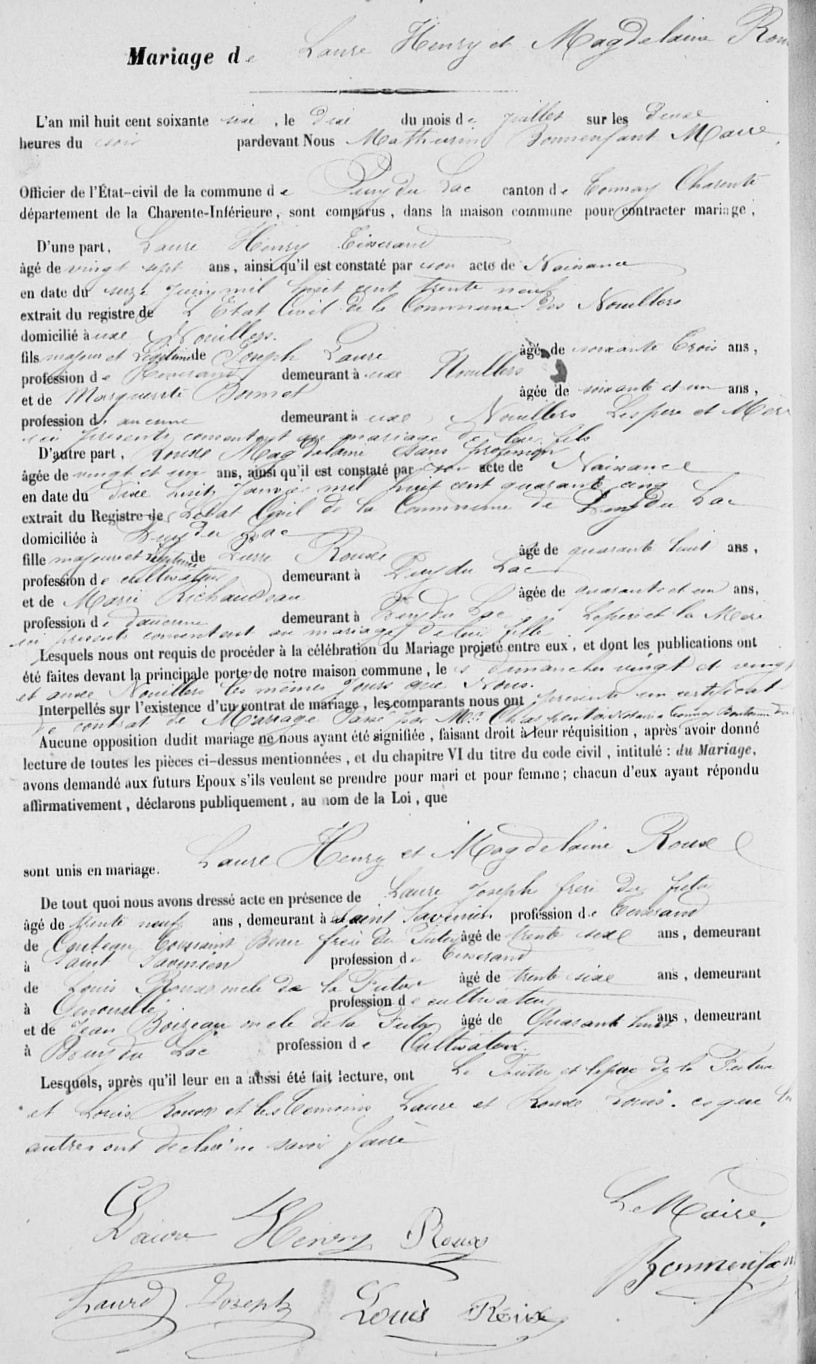 Mariage de Laure Henry et Magdelaine Rou
L'an mil huit cent soixante six, le dix du mois de juillet sur les deux
heures du soir pardevant Nous Mathurin Bonnenfant Maire
Officier de l'État-civil de la commune de Puy du Lac canton de Tonnay Charente
département de la Charente-Inférieure, sont comparus, dans la maison commune pour contracter mariage,
D'une part, Laure Henry Tiserand
âgé de vingt sept ans, ainsi qu'il est constaté par son acte de Naisance
en date du seize juin mil huit cent trente neuf
extrait du registre de L'Etat Civil de la Commune des Nouillers
domicilié à aux Nouillers.
fils majeur et Légitime de Joseph Laure âgé de soixante trois ans,
profession de Tiserand demeurant à aux Nouillers
et de Marguerite Bonnet âgée de soixante et un ans,
profession de aucune demeurant à aux Nouillers Les pere et Mere
ici présents consentent au mariage de leur fils
D'autre part, Rouxe Magdelaine sans profession
âgée de vingt et un ans, ainsi qu'il est constaté par son acte de Naisance
en date du dixe huit Janvier mil huit cent quarante cinq
extrait du Registre de L'Etat Civil de la Commune de Puy du Lac
domiciliée à Puy du Lac
fille majeure et Légitime de Pierre Rouxe âgé de quarante huit ans,
profession de cultivateur demeurant à Puy du Lac
et de Marie Richaudeau âgée de quarante et un ans,
profession de d'aucune demeurant à Puy du Lac Le pere et la Mere
ici présents consentent au mariage de leur fille
Lesquels nous ont requis de procéder à la célébration du Mariage projeté entre eux, et dont les publications ont
été faites devant la principale porte de notre maison commune, le s dimanches vingt et vingt
et aux Nouillers les mêmes jours que Nous.
Interpellés sur l'existence d'un contrat de mariage, les comparants nous ont présenté un certificat
de contrat de Mariage Passé par Me Charpentier Notaire Tonnay Boutonne
Aucune opposition dudit mariage ne nous ayant été signifiée, faisant droit à leur réquisition, après avoir donné
lecture de toutes les pièces ci-dessus mentionnées, et du chapitre VI du titre du code civil, intitulé : du Mariage,
avons demandé aux futurs Epoux s'ils veulent se prendre pour mari et pour femme; chacun d'eux ayant répondu
affirmativement, déclarons publiquement, au nom de la Loi, que
Laure Henry et Magdelaine Rouxe
sont unis en mariage.
De tout quoi nous avons dressé acte en présence de Laure Joseph frere du futur
âgé de trente neuf ans, demeurant à Saint Savinien profession de Tiserand
de Couteau Toussaint Beau frere du Futur âgé de trente sixe ans, demeurant
à Saint Savinien profession de Tiserand
de Louis Rouxe oncle de la Future âgé de trente sixe ans, demeurant
à Genouillé profession de cultivateur
et de Jean Boizeau oncle de la Future âgé de Quarante huit ans, demeurant
à Puy du Lac profession de Cultivateur.
Lesquels, après qu'il leur en a aussi été fait lecture, ont Le Futur et le pere de la Future
et Louis Rouxe et les temoins Laure et Rouxe Louis. ce que les
autres ont déclaré ne savoir faire
Laure Henry Roux
Le Maire,
Bonnenfan
Laure Joseph Louis Roux